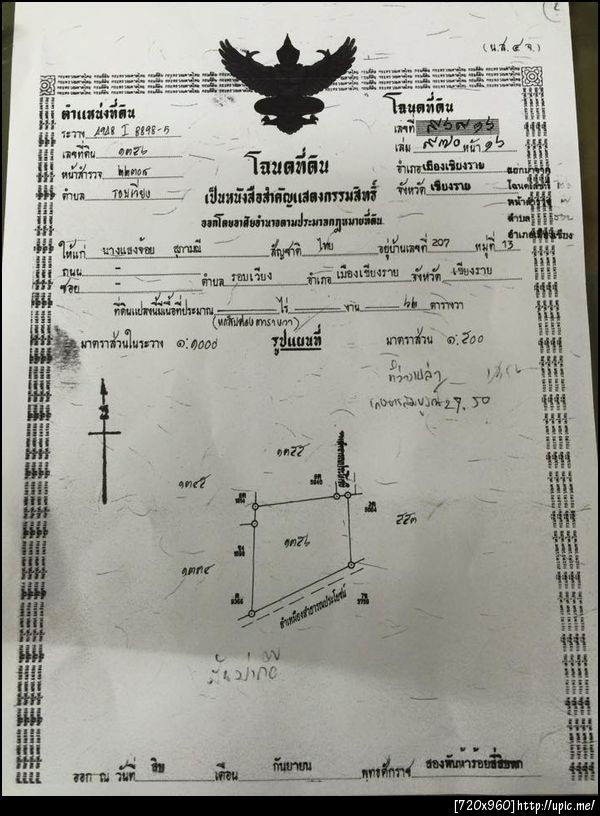 (น.ส. ๔ จ.)
ตำแหน่งที่ดิน
ระวาง 4948 I 8898-5
เลขที่ดิน ๑๓๕๖
หน้าสำรวจ ๒๒๓๐๕
ตำบล รอบเวียง
โฉนดที่ดิน
เลขที่ ๙๖๙๑๖
เล่ม ๙๗๐ หน้า ๑๖
อำเภอ เมืองเชียงราย
จังหวัด เชียงราย
แยกมาจาก
โฉนดเลขที่
หน้าสำรวจ
ตำบล
อำเภอเมืองเชียง
โฉนดที่ดิน
เป็นหนังสือสำคัญแสดงกรรมสิทธิ์
ออกโดยอาศัยอำนาจตามประมวลกฎหมายที่ดิน
ให้แก่ นางแสงจ้อย สุภามณี สัญชาติ ไทย อยู่บ้านเลขที่ 207 หมู่ที่ 13
ถนน - 
ซอย - ตำบล รอบเวียง อำเภอ เมืองเชียงราย จังหวัด เชียงราย
ที่ดินแปลงนี้มีเนื้อที่ประมาณ ไร่ งาน ๖๒ ตารางวา
(หกสิบสองตารางวา)
มาตราส่วนในระวาง ๑:๑๐๐๐ รูปแผนที่ มาตราส่วน ๑:๕๐๐
ที่ว่างเปล่า
29.50
๑๓๕๕
๑๓๕๖
๕๕๓
ลำเหมืองสาธารณประโยชน์
ออก ณ วันที่ สิบ เดือน กันยายน พุทธศักราช สองพันห้าร้อยสี่สิบหก
[720x960]http://upic.me/